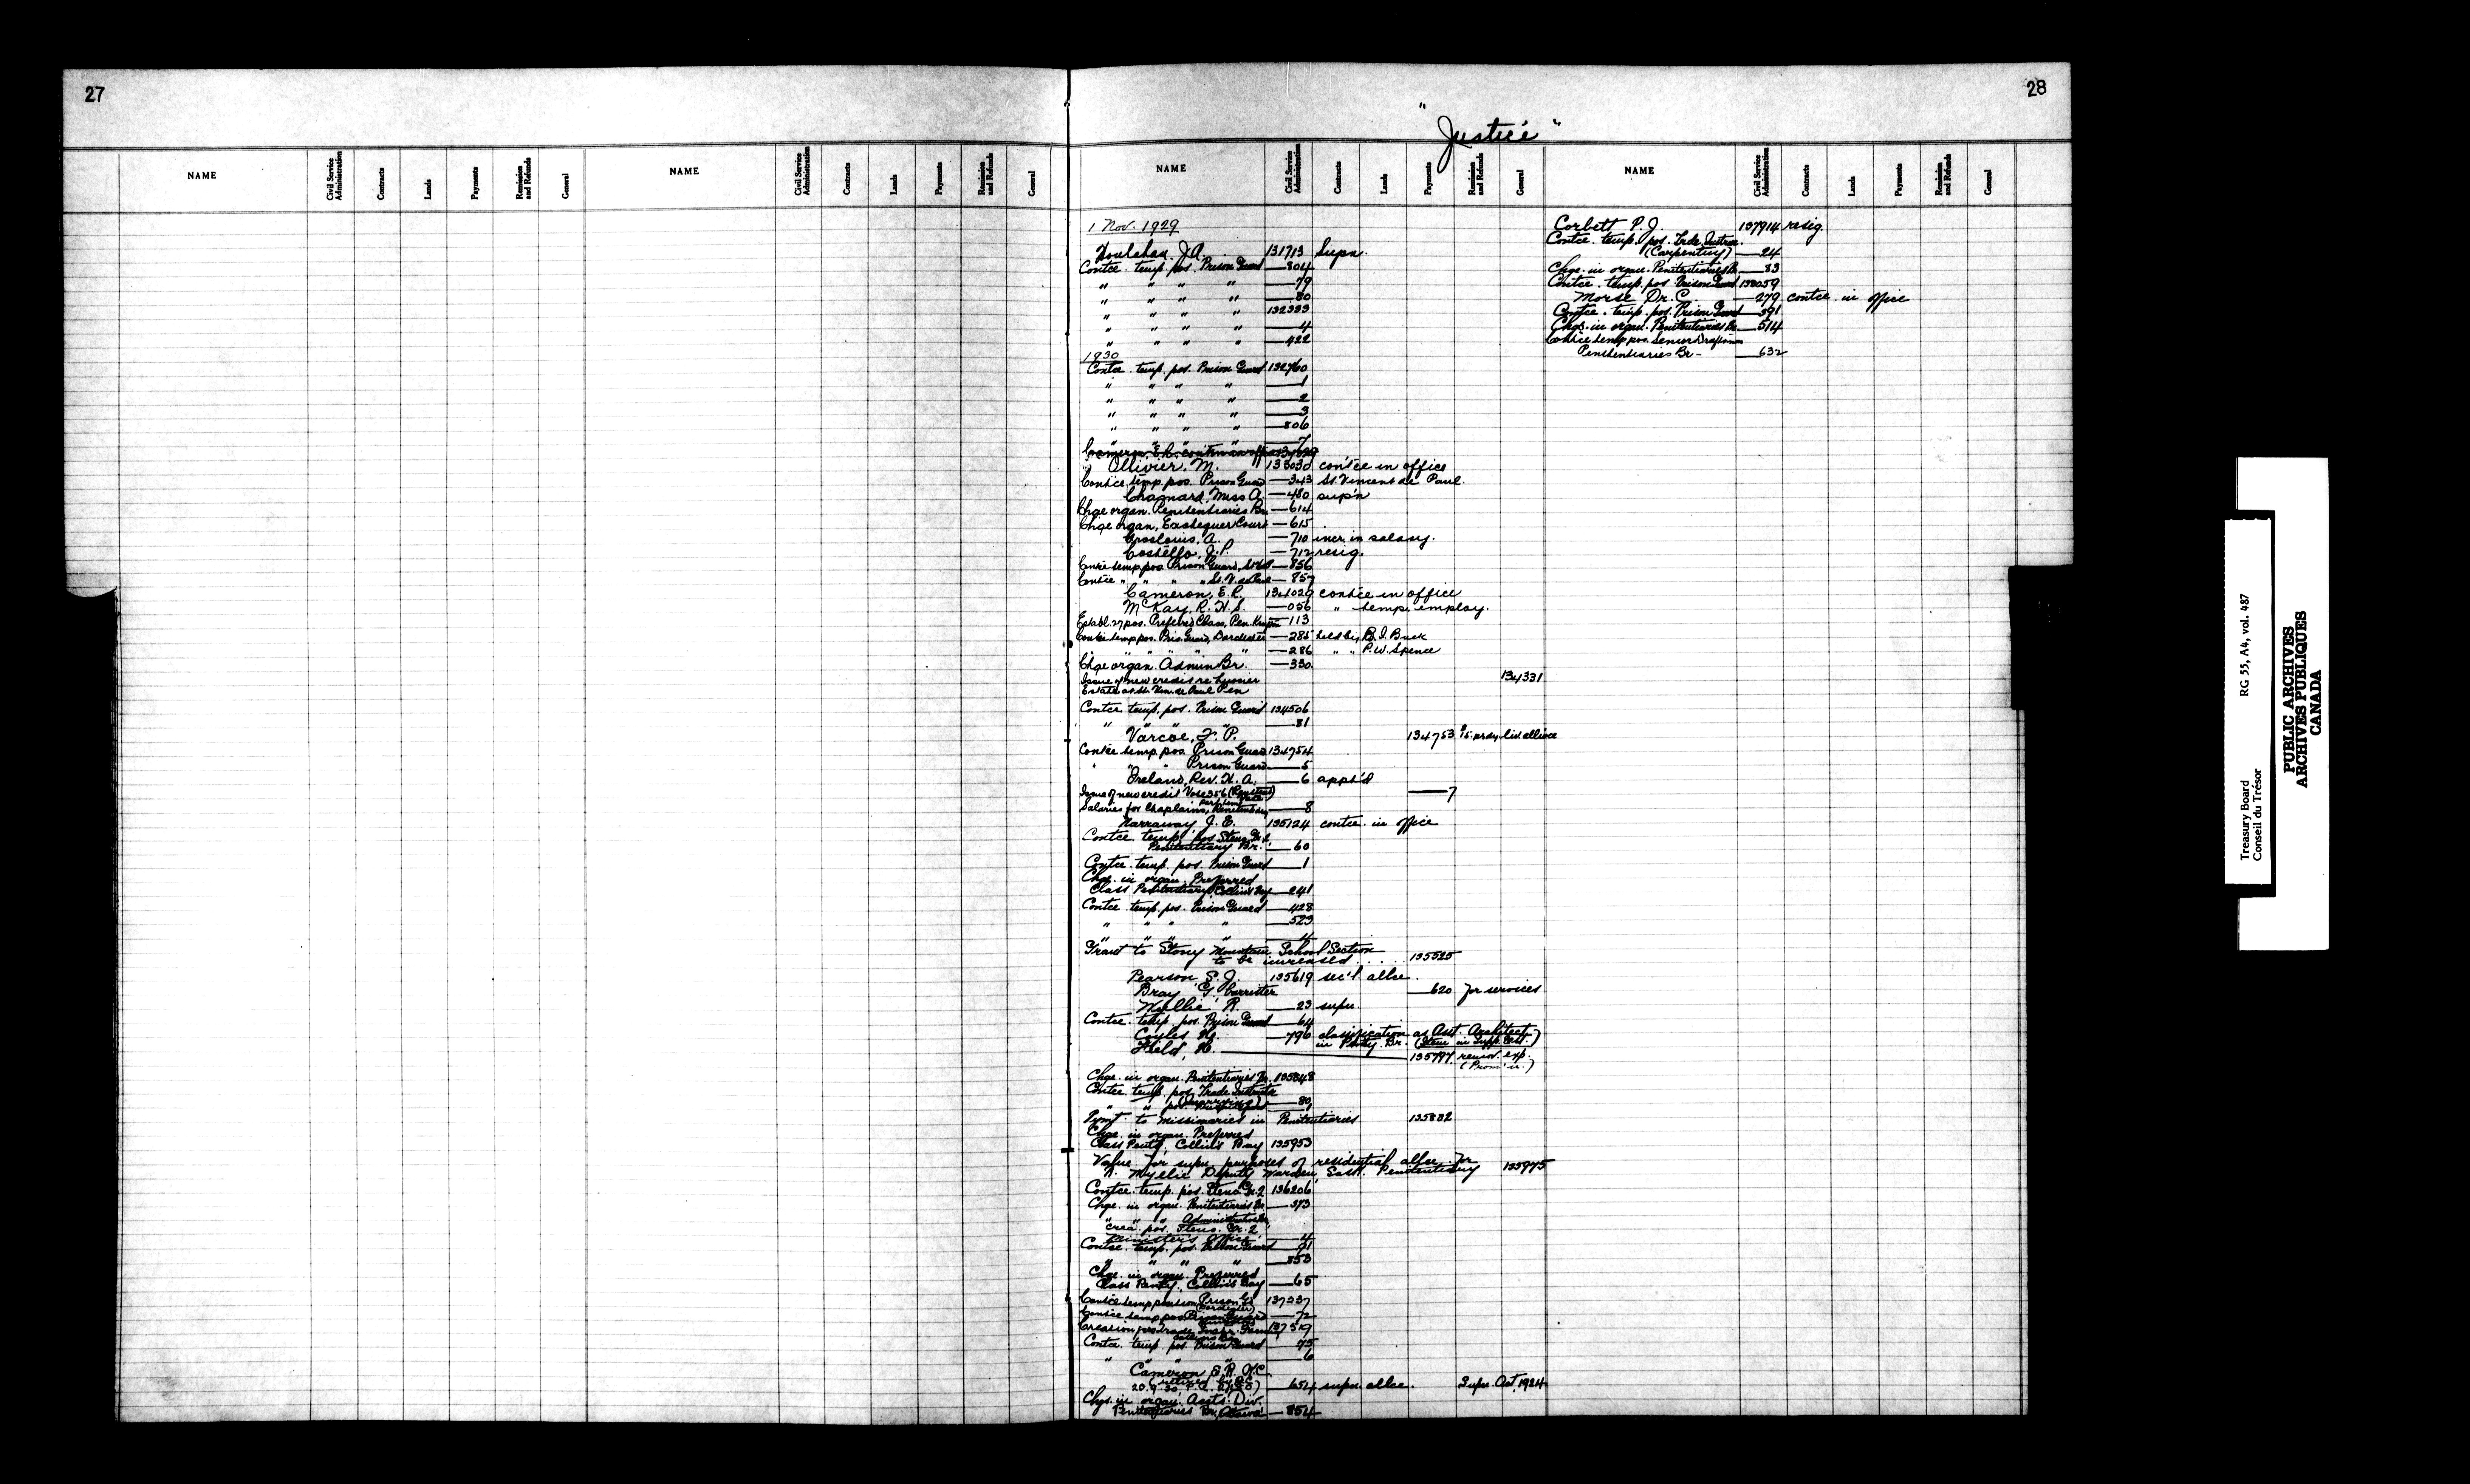 27
NAME Civil Service Administration Contracts Lands Payments Remission and Refunds General NAME Civil Service Administration Contracts Lands Payments Remission and Refunds General
28
"Justice"
NAME Civil Service Administration Contracts Lands Payments Remission and Refunds General NAME Civil Service Administration Contracts Lands Payments Remission and Refunds General
1 Nov. 1929
Houlahan J.A. 131713 Supn.
Contce. temp. pos. Prison Guard —804
" " " " —79
" " " " —80
" " " " 132333
" " " " —4
" " " " —422
1930
Contce. temp. pos. Prison Guard 132760
" " " " —1
" " " " —2
" " " " —3
" " " " —806
" " " " —7
Ollivier, M. 133030 contce in office
Contce. temp. pos. Prison Guard —343 St. Vincent de Paul
Chagnard, Miss A. —480 sup'n
Chge organ. Penitentiaries Br. —614
Chge organ, Exchequer Court —615
Groslouis, A. —710 incr. in salary.
Costello, J.P. —712 resig.
Contce temp pos. Prison Guard, —856
Contce " " " " St. V. de Paul —857
Cameron, E.R. 134029 contce in office
McKay, R.H.S. —056 " temp. employ.
Establ. 27 pos. Preferred Class, Pen. —113
Contce temp pos. Pris. Guard, Dorchester —285 held by B.I. Buck
" " " " " —286 " " P.W. Spence
Chge organ. Admin Br. —330
Issue of new credit re Lussier 134331
Estate at St. Vin. de Paul Pen
Contce temp. pos. Prison Guard 134506
" " " " —81
Varcoe, F.P. 134753 pr day liv. allnce
Contce temp. pos. Prison Guard 134754
" " " Prison Guard —5
Ireland, Rev. H.A. —6 appt'd
Issue of new credit Vote 356 —7
Salaries for Chaplains, —8
Narraway J.E. 135124 contce. in office
Contce. temp. pos. Steno. Gr. 2
Penitentiary Br. —60
Contce. temp. pos. Prison Guard —1
Chge. in organ. Preferred
Class Penitentiary Collin's Bay —241
Contce temp. pos. Prison Guard —428
" " " " —523
" " " " —4
Grant to Stony Mountain School Section
to be increased .... 135525
Pearson S.J. 135619 sec'l. allce.
Bray, G. barrister —620 for services
Wyllie R. —23 supn.
Contce. temp. pos. Prison Guard —64
Coyles —796 classification as Asst. Architect
in Penty. Br. (Item in Supp. Est.)
Field, H. 135797 remov. exp.
Chge. in organ. Penitentiaries Br. 135848
Contce. temp. pos. Trade Instructor
—80
to missionaries in Penitentiaries 135882
Chge. in organ. Preferred
Class Penty. Collin's Bay 135953
Value for supn. purposes of residential allce. for
Wyllie Deputy Warden, Sask. Penitentiary 135975
Contce. temp. pos. Steno. Gr. 2 136206
Chge. in organ. Penitentiaries Br. —373
" " " Administration Br.
crea. pos. Steno. Gr. 2
Minister's Office —4
Contce. temp. pos. Prison Guard —91
" " " " —853
Chge. in organ. Preferred
Class Penty. Collin's Bay —65
Contce temp position Prison Gd 137237
Contce temp pos Prison Guard —72
Creation pos Trade Instr. 137519
Contce. temp. pos. Prison Guard —75
" " " " —6
Cameron E.R. K.C.
—654 supn. allce. Supn. Act, 1924
Chge. in organ. Accts. Div.
Penitentiaries Br. Ottawa —854
Corbett P.J. 137914 resig.
Contce. temp. pos. Trade Instruc.
(Carpentry) —24
Chge. in organ. Penitentiaries Br. —83
Contce. temp. pos. Prison Guard 138059
Morse Dr. C. —279 contce in office
Contce. temp. pos. Prison Guard —391
Chge. in organ. Penitentiaries Br. —514
Contce temp pos. Senior Draftsman
Penitentiaries Br— —632
Treasury Board RG 55, A4, vol. 487
Conseil du Trésor
PUBLIC ARCHIVES
ARCHIVES PUBLIQUES
CANADA